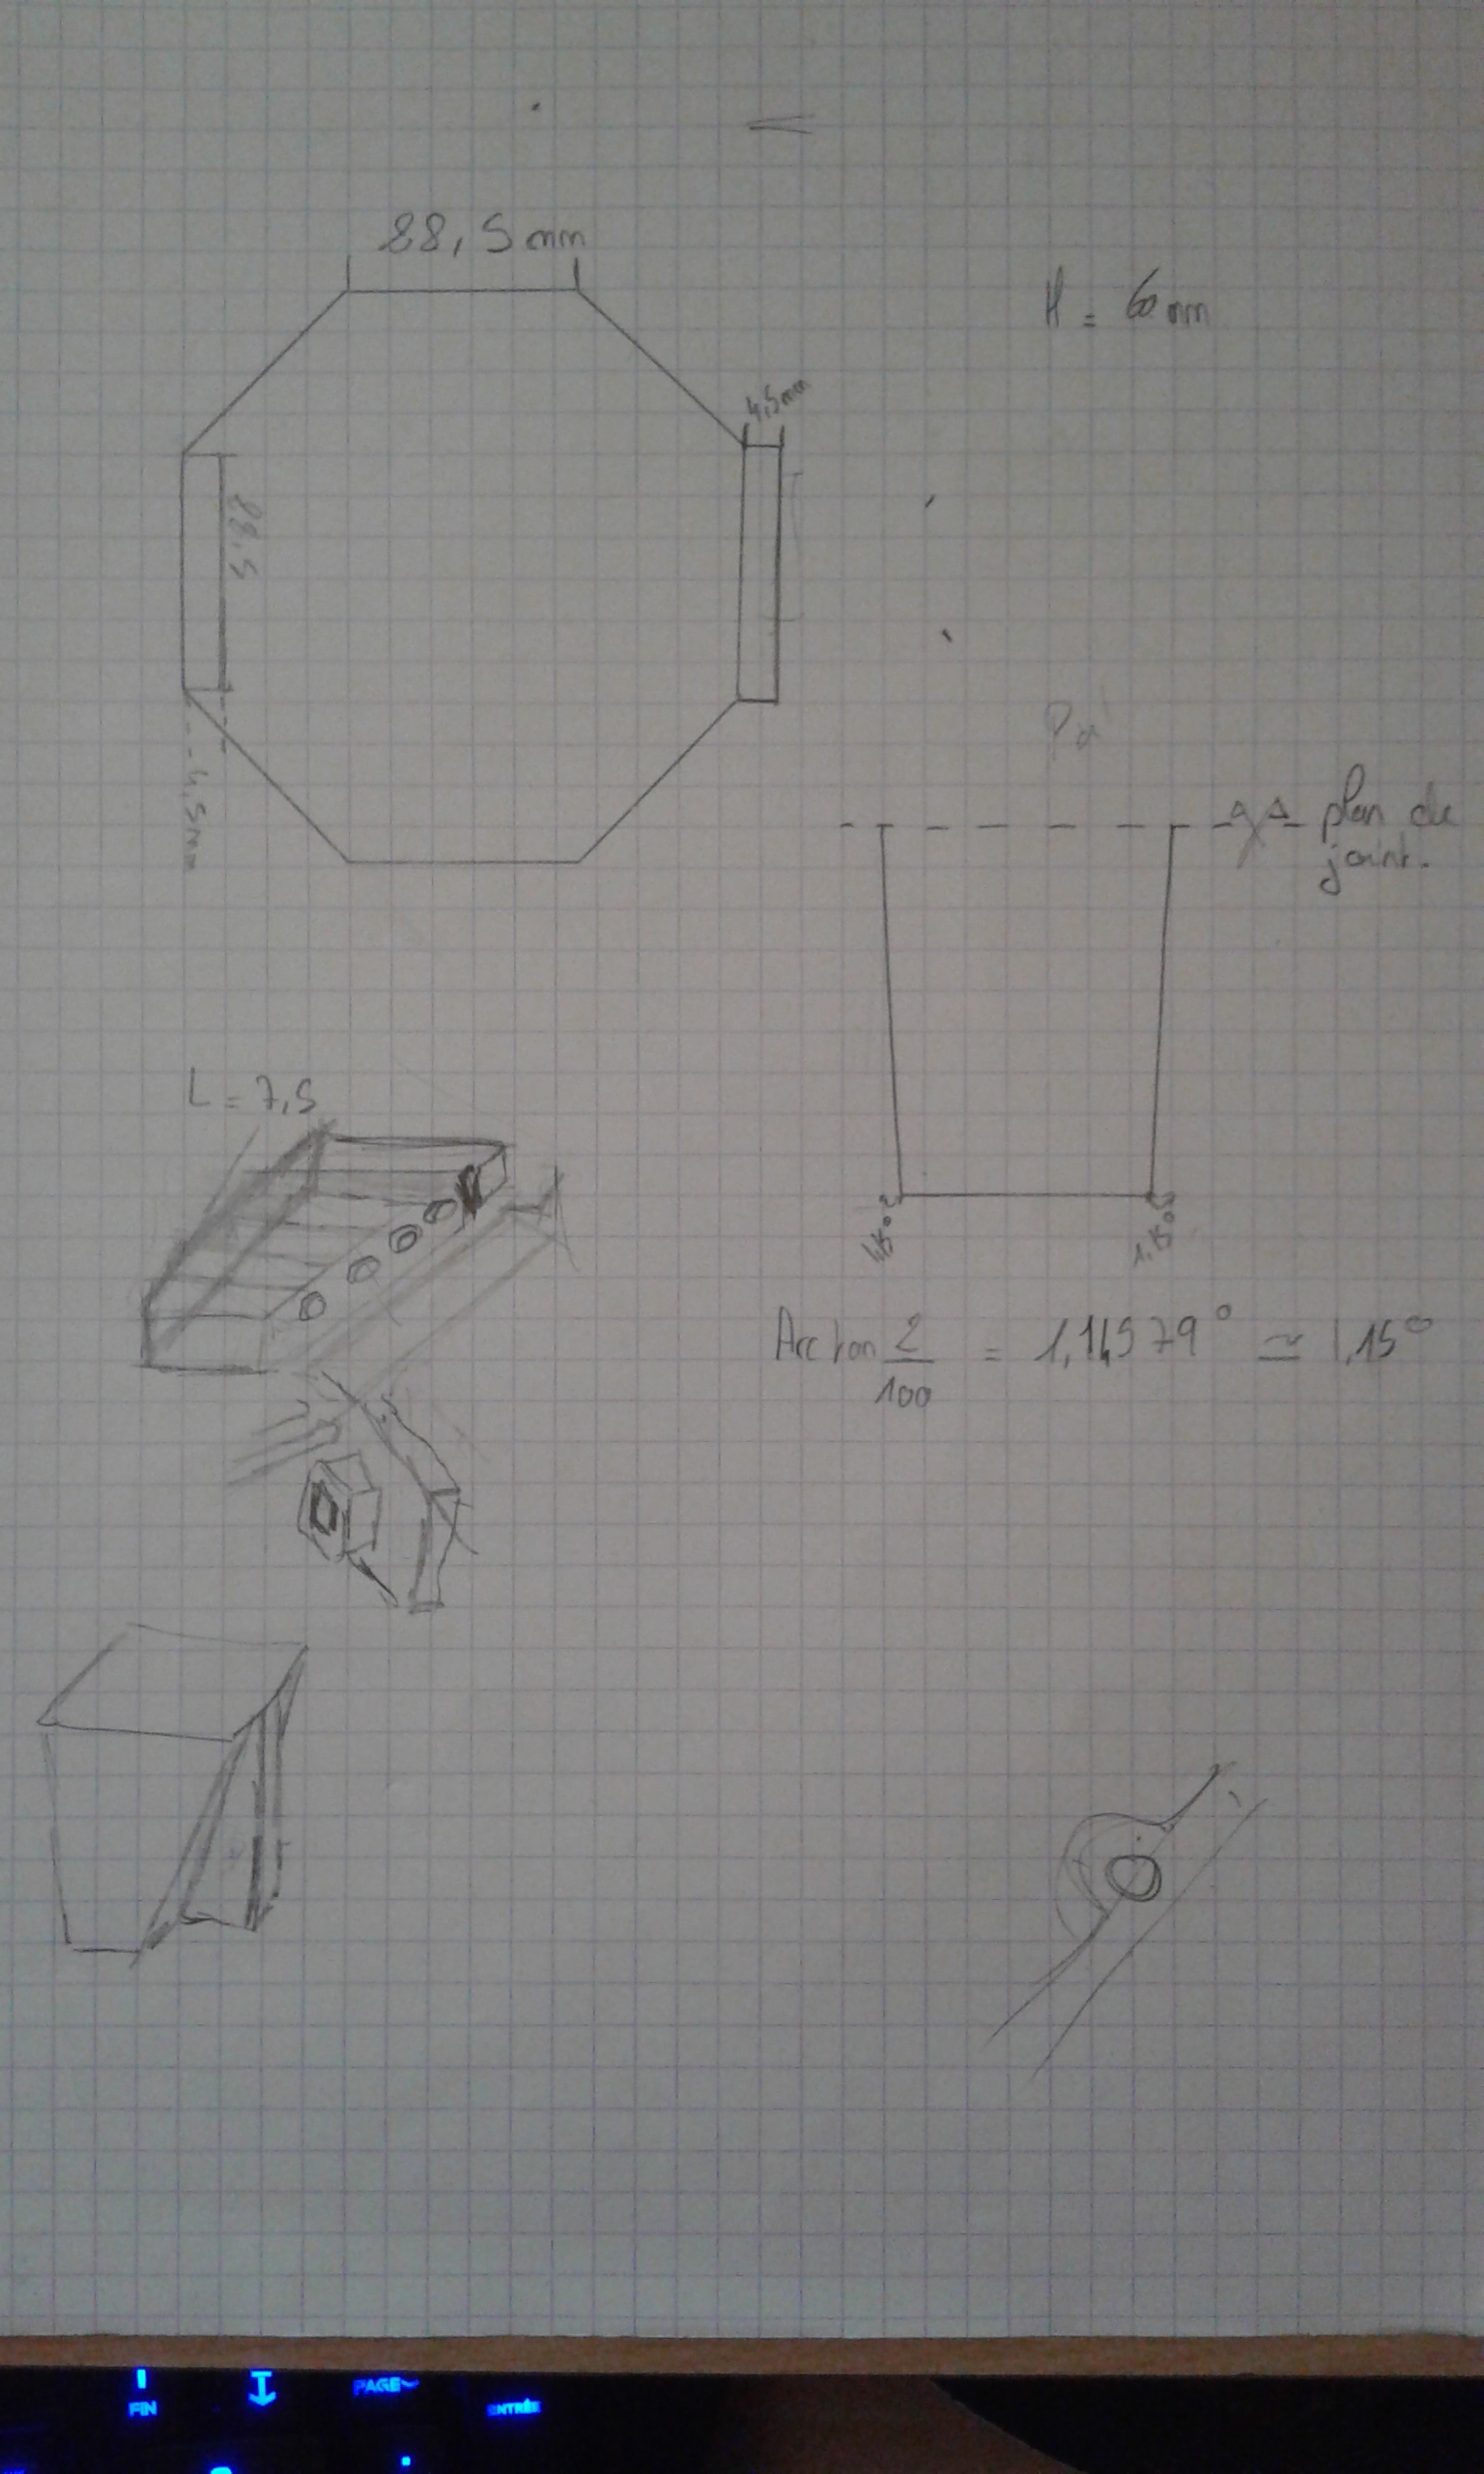 88,5mm
H = 60mm
4,5mm
88,5
4,5mm
plan de
joint.
L = 7,5
Arctan 2/100 = 1,14579° ≃ 1,15°
FIN
PAGE
ENTRÉE